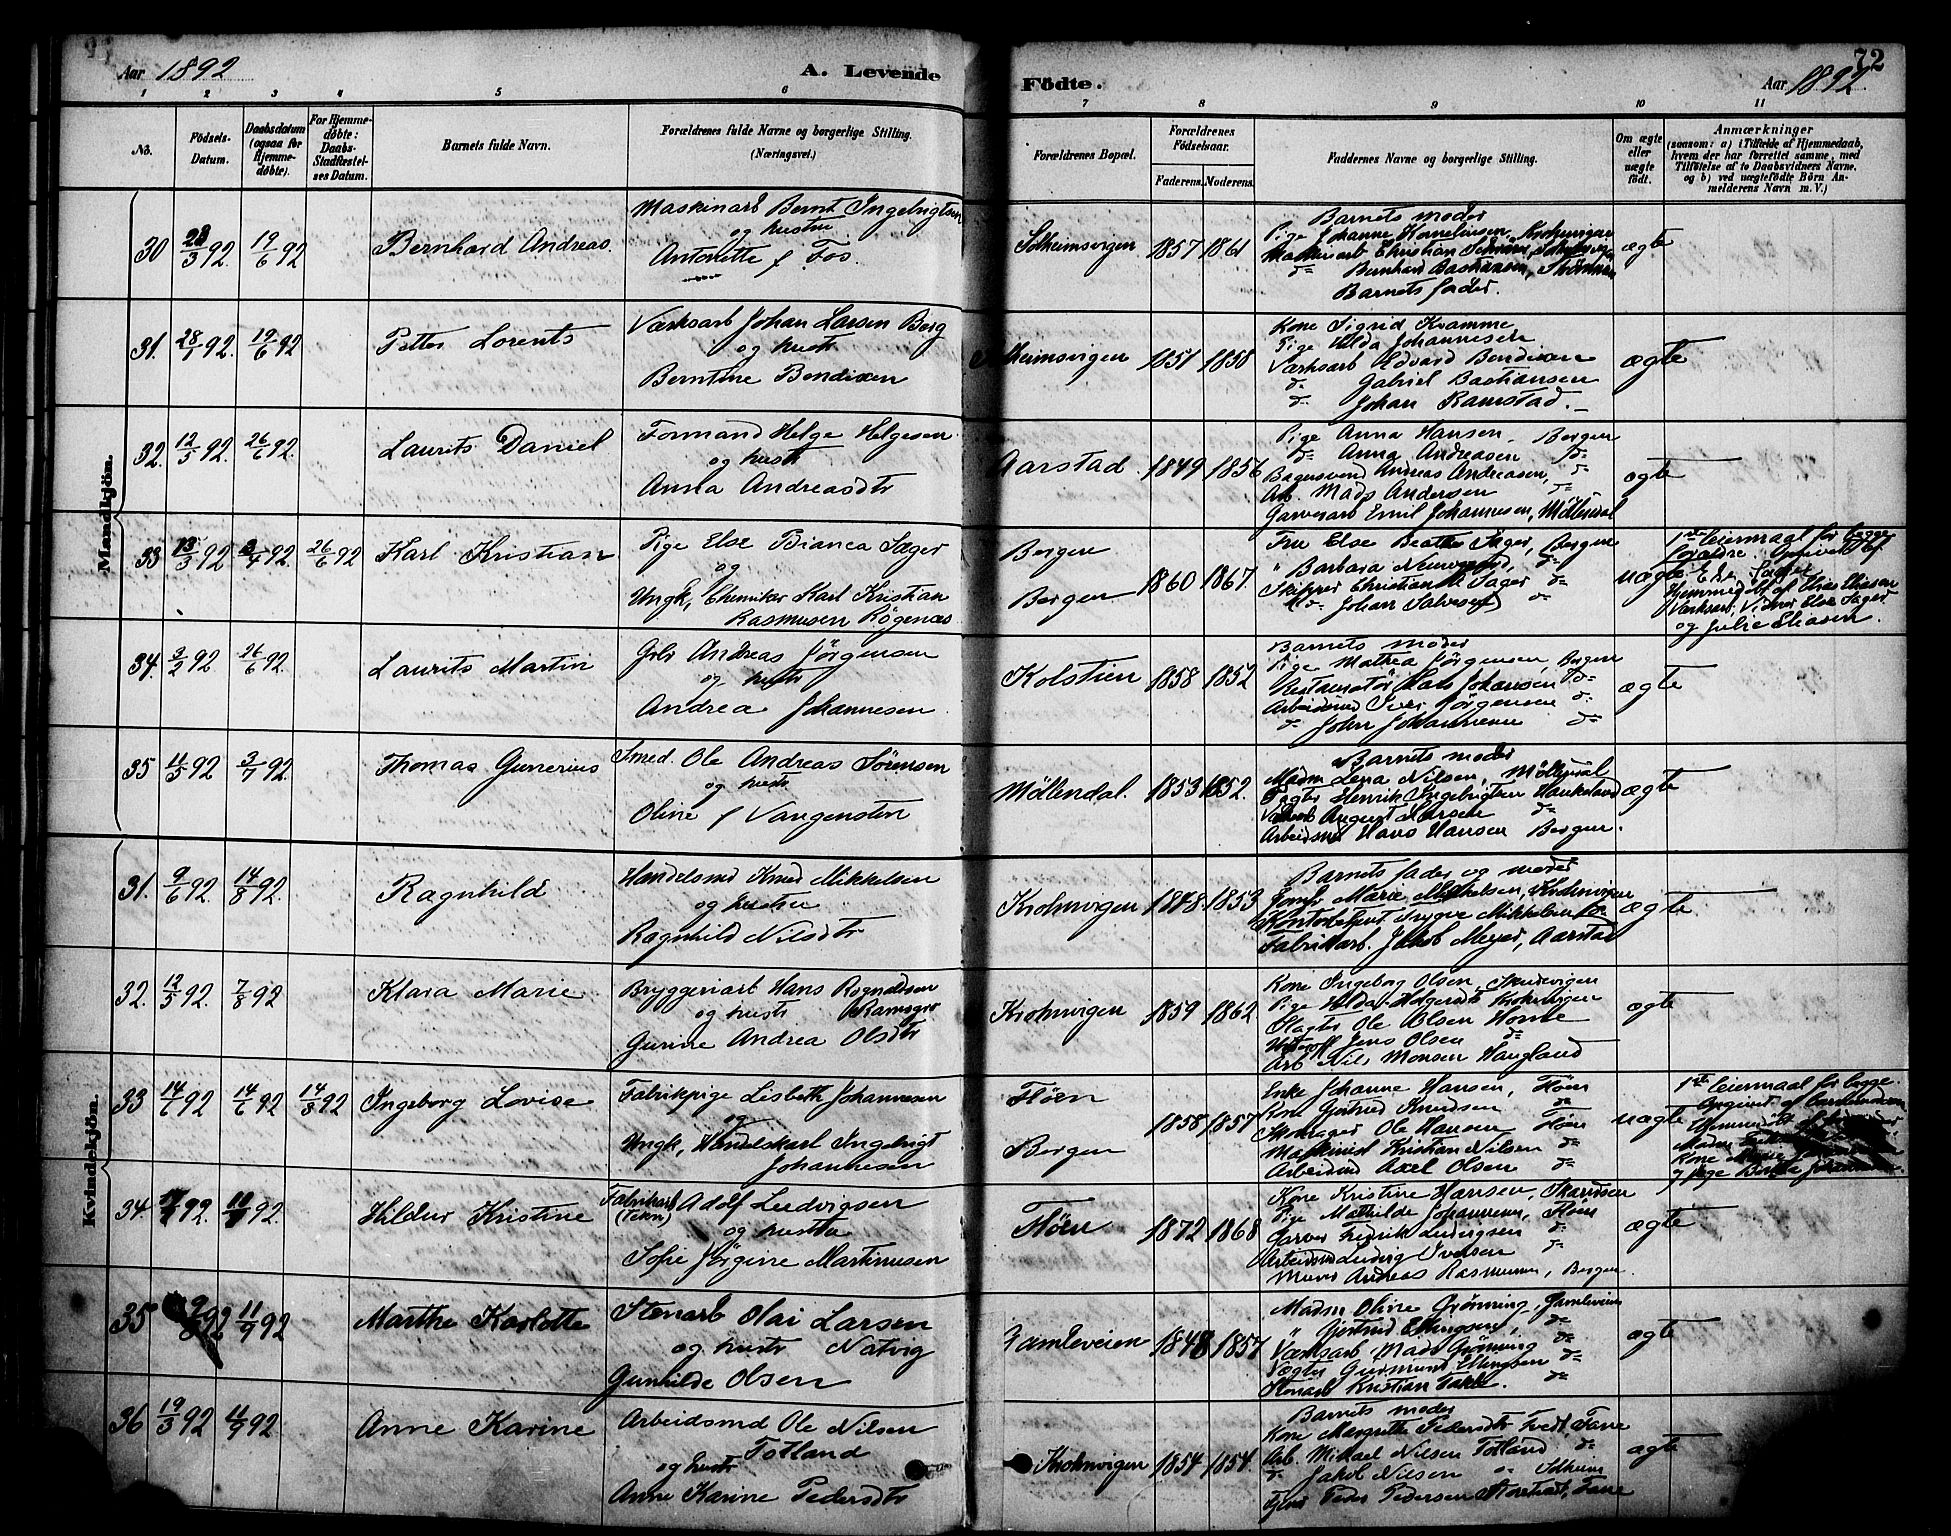 Aar 1892
A. Levende
Födte.
72
Aar 1892
1 2 3 4 5 6 7 8 9 10 11
No.
Födsels-Datum.
Daabsdatum (ogsaa for Hjemmedøbte).
For Hjemmedøbte: Daabs-Stadfæstelses Datum.
Barnets fulde Navn.
Forældrenes fulde Navne og borgerlige Stilling. (Næringsvei.)
Forældrenes Bopæl.
Forældrenes Födselsaar.
Faderens. Moderens.
Faddernes Navne og borgerlige Stilling.
Om ægte eller uægte födt.
Anmærkninger
(saasom: a) i Tilfælde af Hjemmedaab,
hvem der har forrettet samme, med
Tilföielse af to Daabsvidners Navne,
og b) ved uægtefödte Börn Anmelderens Navn m. V.)
Mandkjön.
30 19/6 92 Bernhard Andreas.
Maskinarb Bernt Ingebrigtsen
og hustru
Antonette f. Fos.
Solheimsvigen 1857 1861
Barnets moder
Pige Johanne Kornelius­en,
Maskinarb Christian
do Bernhard Bastiansen,
Barnets fader.
ægte
31. 28/1 92. 19/6 92 Petter Lorents
Værksarb Johan Larsen Berg
og hustr
Berntine Bendixen
Solheimsvigen 1851 1858
Kone Sigrid Kvamme
Pige Hilda Johannesen
Værksarb Edvard Bendixen
do Gabriel Bastiansen
do Johan Ramstad.
ægte
32. 12/5 92. 26/6 92. Laurits Daniel
Formand Helge Helgesen
og hustr
Anna Andreasdtr
Aarstad. 1849 1856
Pige Anna Hansen, Bergen
do Anna Andreasen do
Bagersvend Andreas Andreasen, do
Arb. Mads Andersen do
Garverarb Emil Johannesen, Möllendal
ægte
33 13/3 92 3/4 92 26/6 92 Karl Kristian
Pige Else Bianca Sager
og
Ungk, Chemiker Karl Kristian
Rasmusen Rögenæs.
Bergen
Bergen
1860 1867
Fru Else Beathe Sager, Bergen
" Barbara do
Skipper Christian Sager do
do Johan Salvesen do
uægte
1ste Leiermaal for begge
forældre. Opgivet af
Else Sager
Hjemmedöbt af Elias Eliasen
Værksarb, Vidner Else Sager
og Julie Eliasen.
34. 3/2 92 26/6 92. Laurits Martin
Andreas Jörgensen
og hustr
Andrea Johannesen
Kolstien 1858 1852
Barnets moder
Pige Mathea Jörgensen, Bergen
Hans Johansen do
Arbeidsmd Iver Jörgensen do
do John Johannesen do
ægte
35 11/5 92 3/7 92. Thomas Gunerius
Smed. Ole Andreas Sörensen
og hustr
Oline f Vangensten
Möllendal. 1853 1852.
Barnets moder
Madm Lena Nilsen, Möllendal
Vægter Henrik Ingebrigtsen Haukeland
August Larsen do
Arbeidsmd Hans Hansen Bergen.
ægte
Kvindekjön.
31. 9/6 92. 14/8 92. Ragnhild
Handelsmd Knud Mikkelsen
og hustru
Ragnhild Nilsdtr
Krohnvigen 1848 1853
Barnets fader og moder
Jomfr Marie Mikkelsen, Krohnvigen
Kontorbetjent Trygve Mikkelsen do
Fabrikarb. Jakob Meyer, Aarstad
ægte.
32. 12/5 92. 7/8 92 Klara Marie
Bryggeriarb Hans Rognaldsen
og hustr
Gurine Andrea Olsdtr
Krohnvigen 1859 1862
Kone Ingeborg Olsen,
Pige Hilda Holgersdtr Krohnvigen
Slagter Ole Olsen Horne
Underoff Jens Olsen do
Arb Nils Monsen Haugland
ægte
33 14/6 92 14/6 92 14/8 92 Ingeborg Lovise
Fabrikpige Lisbeth Johannesen
og
Ungk, Handelskarl Ingebrigt
Johannesen
Flöen
Bergen
1858 1857
Enke Johanne Hansen, Flöen
Kone Gjertrud Knudsen do
Skomager Ole Hansen Flöen
Maskinist Kristian Nilsen do
Arbeidsmd Axel Olsen do
uægte
1ste Leiermaal for begge.
Opgivet af barnemoderen
Hjemmedöbt af
Madm
Kone
og Pige
34. 92. 92. Hildur Kristine
Fabrikarb Adolf Ludvigsen
og hustru
Sofie Jörgine Martinusen
Flöen 1872 1868
Kone Kristine Hansen,
Pige Mathilde Johannesen, Flöen
Garver Fredrik Ludvigsen do
Arbeidsmd Ludvig Iversen do
Murer Andreas Rasmusen, Bergen.
ægte
35 92 11/9 92 Marthe Karlotte
Stenarb Olai Larsen
og hustr Natvig
Gunhilde Olsen
Gamleveien 1848 1857
Madm Oline Grönning, Gamleveien
" Gjertrud Ellingsen, do
Værksarb Mads Grönning
Vægter Gudmund Ellingsen do
Stenarb Kristian do
ægte
36 19/3 92 11/9 92 Anne Karine
Arbeidsmd Ole Nilsen
Totland
og hustr
Anne Karine Pedersdtr
Krohnvigen 1854 1854.
Barnets moder
Kone Margrethe Pedersdtr Tvedt, Fane
Arb. Mikael Nilsen Totland do
do Jakob Nilsen Solheim
Peder Pedersen Fane
ægte